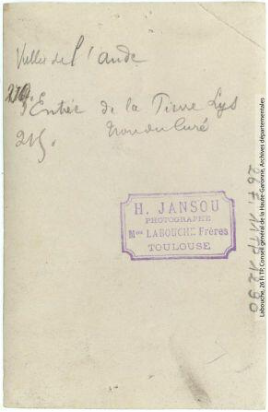 Vallée de l'Aude
219. Entrée de la Pierre Lys
215. Trou du Curé
H. JANSOU
PHOTOGRAPHE
Mon LABOUCHE Frères
TOULOUSE
26 FI TP 1290
Labouche, 26 Fi TP, Conseil général de la Haute-Garonne, Archives départementales